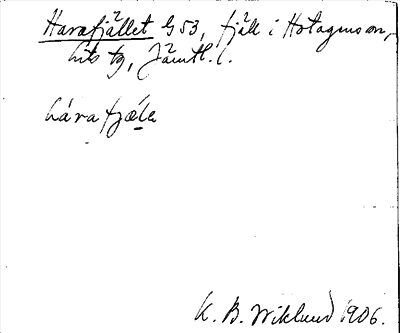 Harafjället G 53, fjäll i Hotagens sn,
Lits tg, Jämtl. l.
hára fjæ̀la
K. B. Wiklund 1906.